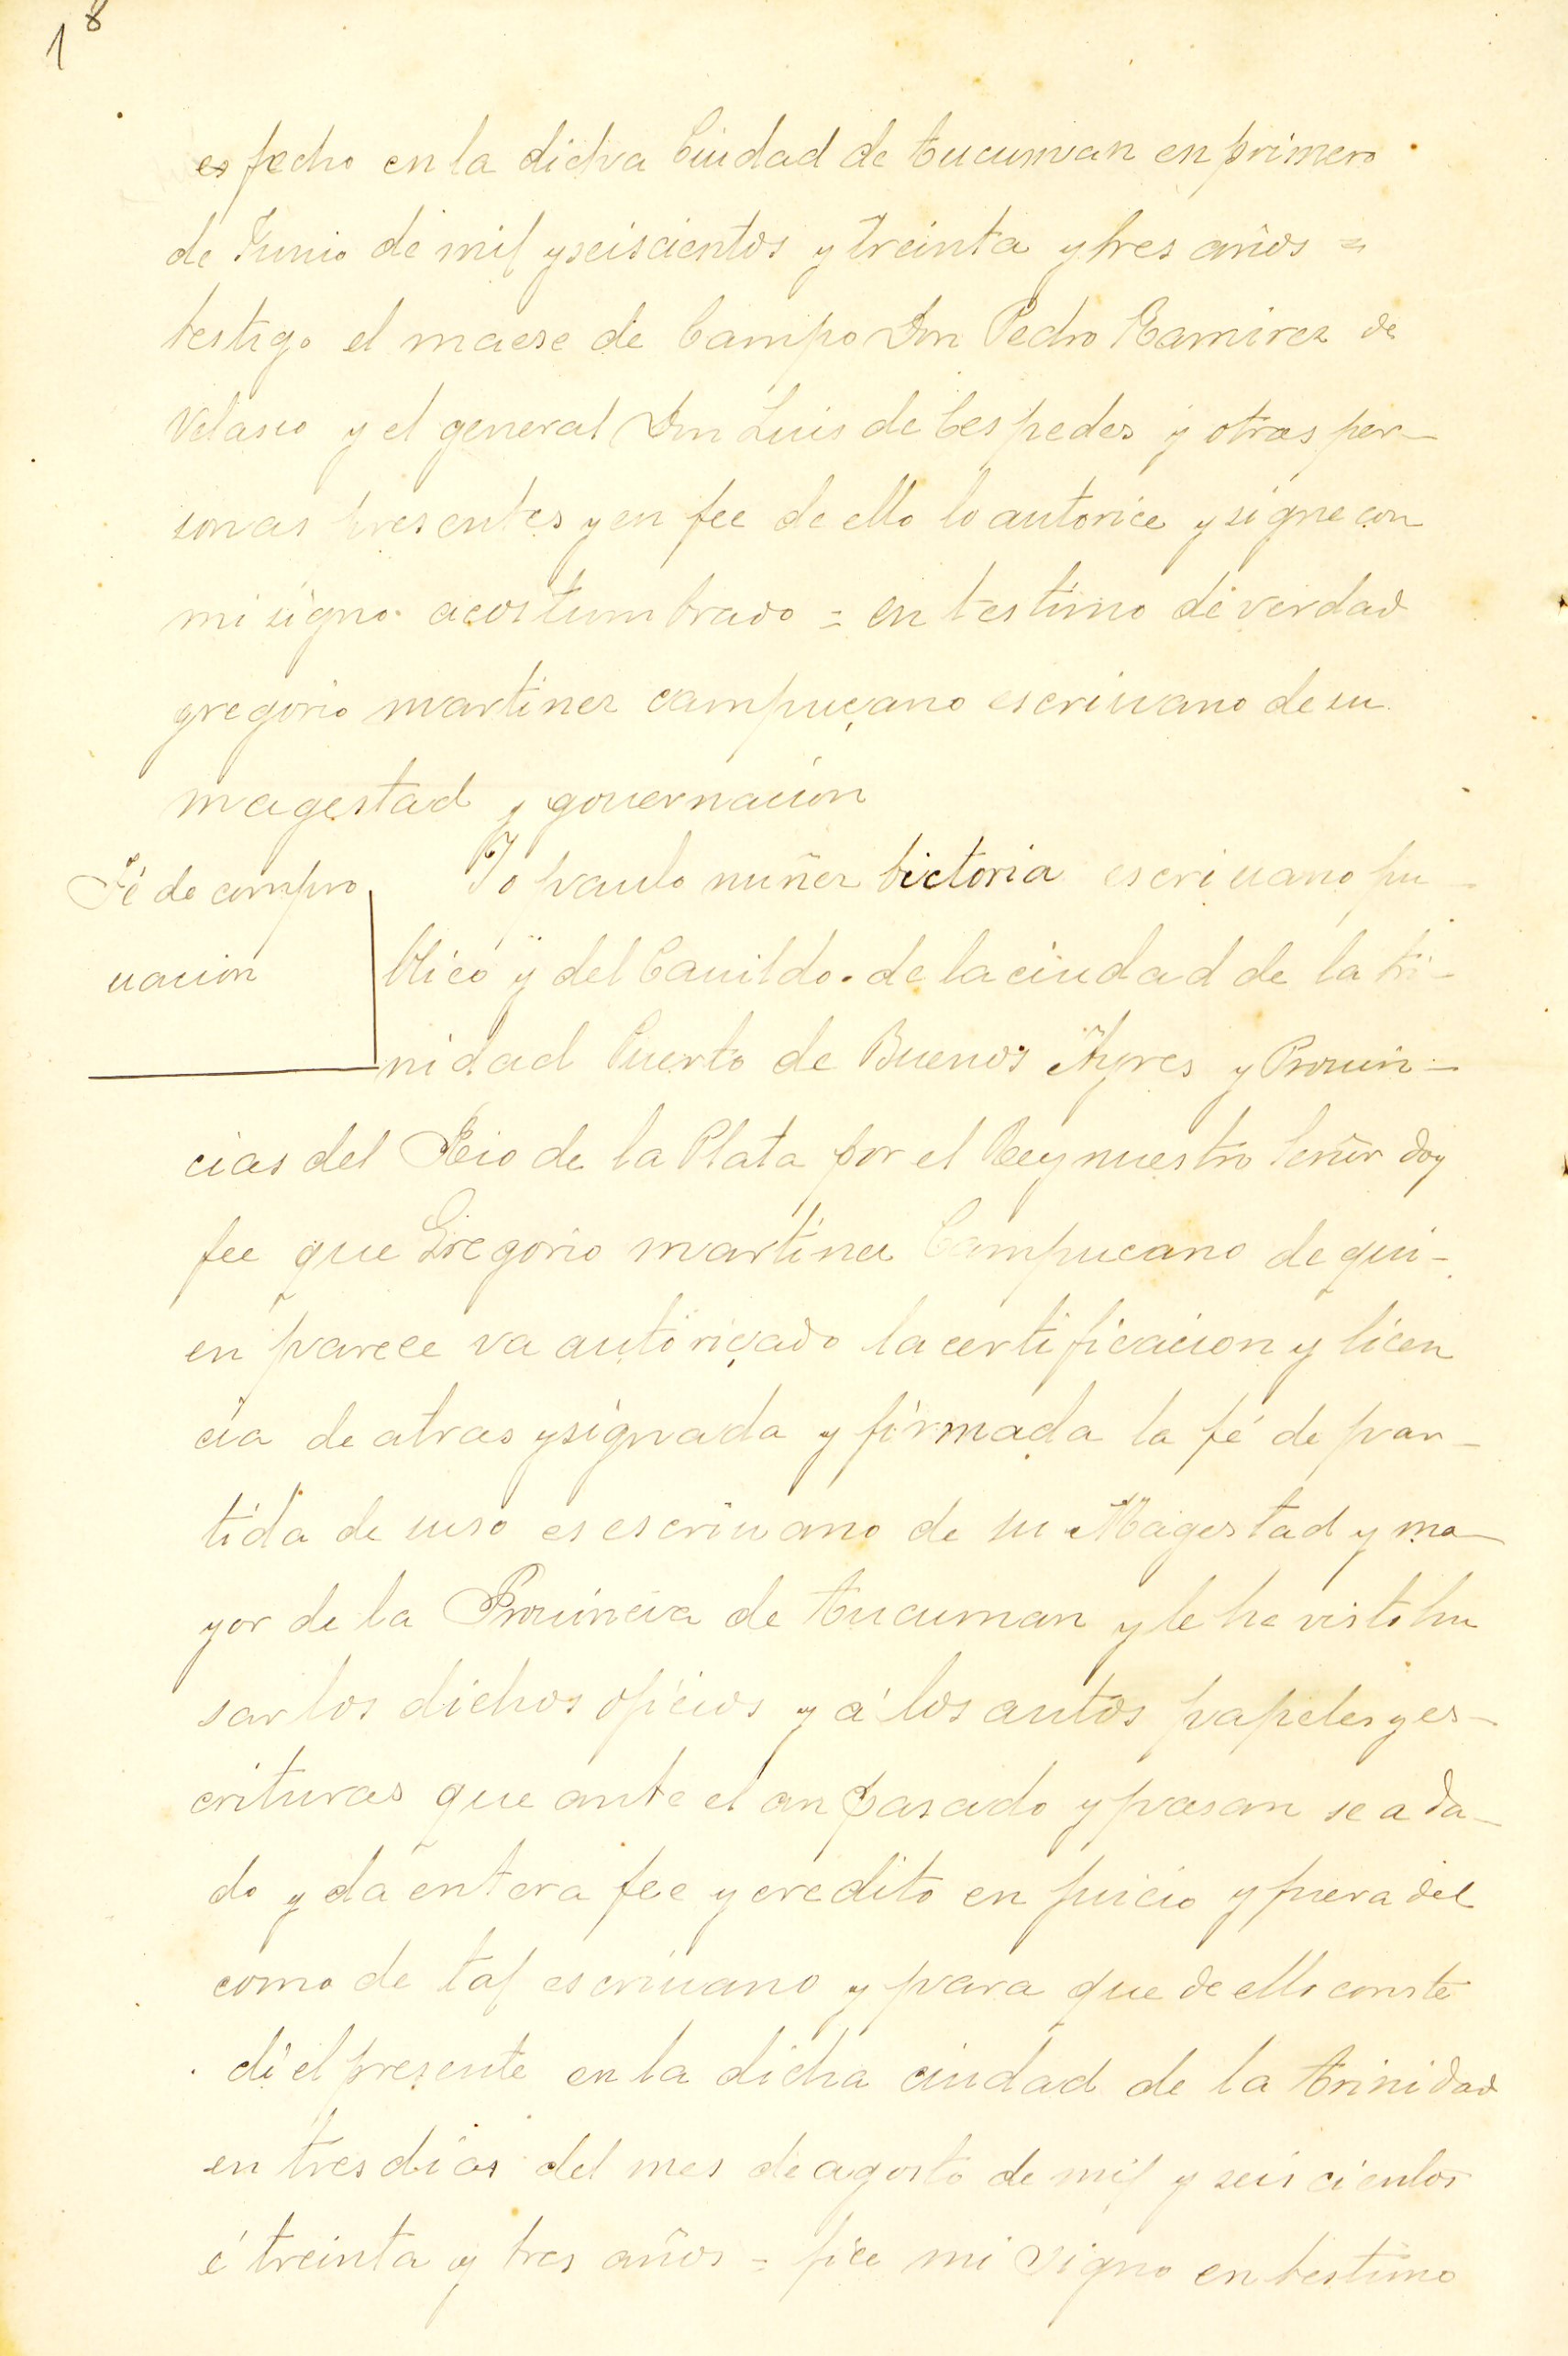 18
es fecho en la dicha Ciudad de tucuman en primero
de Junio de mil y seiscientos y treinta y tres años =
testigo el maese de Campo Don Pedro Ramirez de
Velasco y el general Don Luis de Cespedes y otras per-
sonas presentes y en fee de ello lo autorice y signe con
mi signo acostumbrado = en testimo de verdad
gregorio martinez campuçano escriuano de su
magestad y gouernacion
Fé de compro
uacion
Yo paulo nuñez bictoria escriuano pu-
blico y del Cauildo de la ciudad de la tri-
nidad Puerto de Buenos Ayres y Prouin-
cias del Rio de la Plata por el Rey nuestro Señor doy
fee que Gregorio martinez Campucano de qui-
en parece va autoriçado la certificacion y licen
cia de atras y signada y firmada la fé de par-
tida de suso es escriuano de su Magestad y ma-
yor de la Prouincia de tucuman y le he visto hu
sar los dichos oficios y á los autos papeles y es-
crituras que ante el an pasado y pasan se a da-
do y da entera fee y credito en juicio y fuera del
como de tal escriuano y para que de ello conste
di el presente en la dicha ciudad de la trinidad
en tres dias del mes de agosto de mil y seis cientos
é treinta y tres años = fice mi signo en testimo